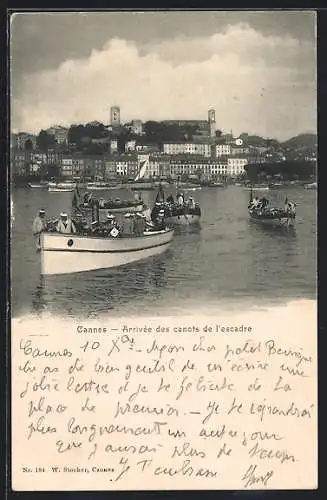 Cannes — Arrivée des canots de l'escadre
Cannes 10 Xbre — Mon cher petit
as de bien gentil de m'écrire une
jolie lettre et je te félicite de ta
place de premier — Je te répondrai
plus longuement un autre jour
que j'aurai plus de temps.
Je t'embrasse
Nr. 194 W. Stocher, Cannes